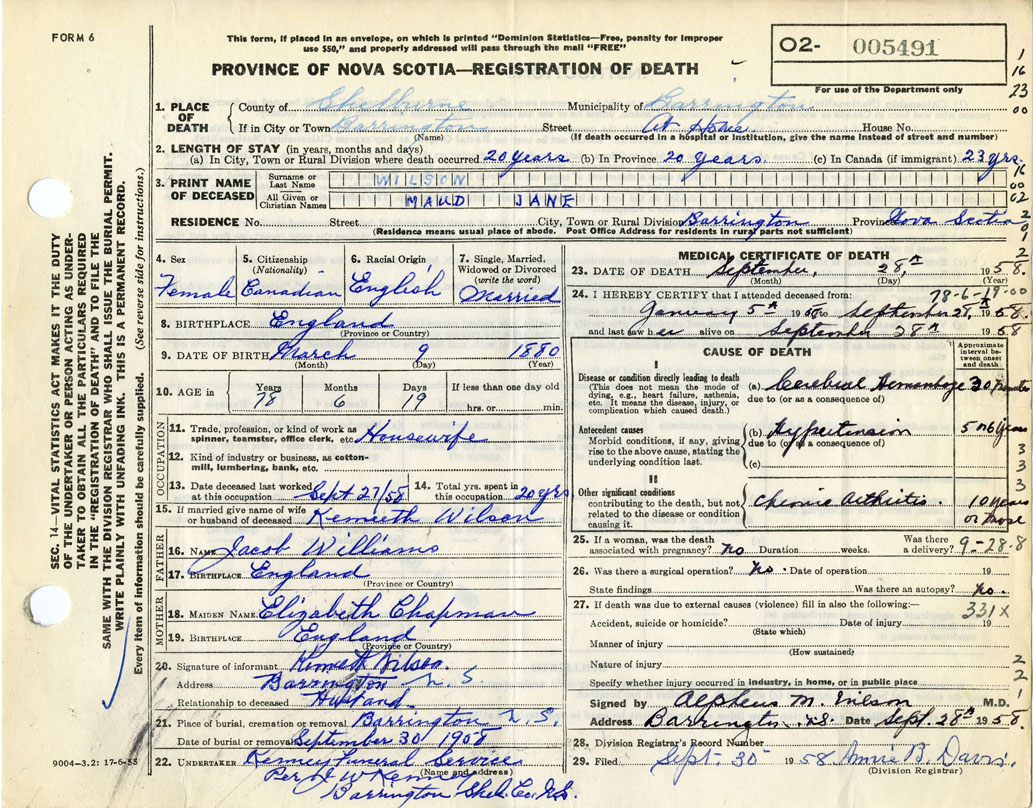 FORM 6
This form, if placed in an envelope, on which is printed "Dominion Statistics—Free, penalty for improper
use $50," and properly addressed will pass through the mail "FREE"
PROVINCE OF NOVA SCOTIA—REGISTRATION OF DEATH
O2- 005491
For use of the Department only
1
16
23
00
1. PLACE OF DEATH County of Shelburne Municipality of Barrington
If in City or Town Barrington Street At Home House No.
(Name) (If death occurred in a hospital or institution, give the name instead of street and number)
2. LENGTH OF STAY (in years, months and days)
(a) In City, Town or Rural Division where death occurred 20 years (b) In Province 20 years. (c) In Canada (if immigrant) 23 yrs.
3. PRINT NAME OF DECEASED
Surname or Last Name WILSON
All Given or Christian Names MAUD JANE
16
00
02
RESIDENCE No. Street City, Town or Rural Division Barrington Province Nova Scotia
(Residence means usual place of abode. Post Office Address for residents in rural parts not sufficient)
4. Sex Female
5. Citizenship (Nationality) Canadian
6. Racial Origin English
7. Single, Married, Widowed or Divorced (write the word) Married
8. BIRTHPLACE England
(Province or Country)
9. DATE OF BIRTH March 9 1880
(Month) (Day) (Year)
10. AGE in Years 78 Months 6 Days 19 If less than one day old hrs. or min.
OCCUPATION
11. Trade, profession, or kind of work as spinner, teamster, office clerk, etc. Housewife
12. Kind of industry or business, as cotton-mill, lumbering, bank, etc.
13. Date deceased last worked at this occupation Sept 27/58 14. Total yrs. spent in this occupation 20 yrs
15. If married give name of wife or husband of deceased Kenneth Wilson
FATHER
16. NAME Jacob Williams
17. BIRTHPLACE England
(Province or Country)
MOTHER
18. MAIDEN NAME Elizabeth Chapman
19. BIRTHPLACE England
(Province or Country)
20. Signature of informant Kenneth Wilson.
Address Barrington N.S.
Relationship to deceased Husband.
21. Place of burial, cremation or removal Barrington N.S.
Date of burial or removal September 30 1958
22. UNDERTAKER Kenney Funeral Service
(Name and address)
Per J W Kenney
Barrington Shel. Co. N.S.
9004-3.2: 17-6-55
MEDICAL CERTIFICATE OF DEATH
23. DATE OF DEATH September, 28th 1958
(Month) (Day) (Year)
78-6-19-00
24. I HEREBY CERTIFY that I attended deceased from:
January 5th 1958 to September 28th 1958.
and last saw her alive on September 28th 1958
CAUSE OF DEATH
Approximate interval between onset and death
I
Disease or condition directly leading to death
(This does not mean the mode of dying, e.g., heart failure, asthenia, etc. It means the disease, injury, or complication which caused death.)
(a) Cerebral Hemorrhage 30 minutes
due to (or as a consequence of)
Antecedent causes
Morbid conditions, if say, giving rise to the above cause, stating the underlying condition last.
(b) Hypertension 5 or 6 years
due to (or as a consequence of)
(c)
II
Other significant conditions
contributing to the death, but not related to the disease or condition causing it.
Chronic Arthritis. 10 years or more
3
3
3
25. If a woman, was the death associated with pregnancy? No Duration weeks. Was there a delivery?
9-28-8
26. Was there a surgical operation? No. Date of operation 19
State findings Was there an autopsy? No.
27. If death was due to external causes (violence) fill in also the following:—
331X
Accident, suicide or homicide? Date of injury 19
(State which)
Manner of injury
(How sustained)
Nature of injury
Specify whether injury occurred in industry, in home, or in public place
2
2
1
Signed by Alpheus M. Wilson M.D.
Address Barrington N.S. Date Sept. 28th 1958
28. Division Registrar's Record Number
29. Filed Sept. 30 1958 Annie B. Davis.
(Division Registrar)
SEC. 14—VITAL STATISTICS ACT MAKES IT THE DUTY
OF THE UNDERTAKER OR PERSON ACTING AS UNDER-
TAKER TO OBTAIN ALL THE PARTICULARS REQUIRED
IN THE "REGISTRATION OF DEATH" AND TO FILE THE
SAME WITH THE DIVISION REGISTRAR WHO SHALL ISSUE THE BURIAL PERMIT.
WRITE PLAINLY WITH UNFADING INK. THIS IS A PERMANENT RECORD.
Every item of information should be carefully supplied. (See reverse side for instructions.)